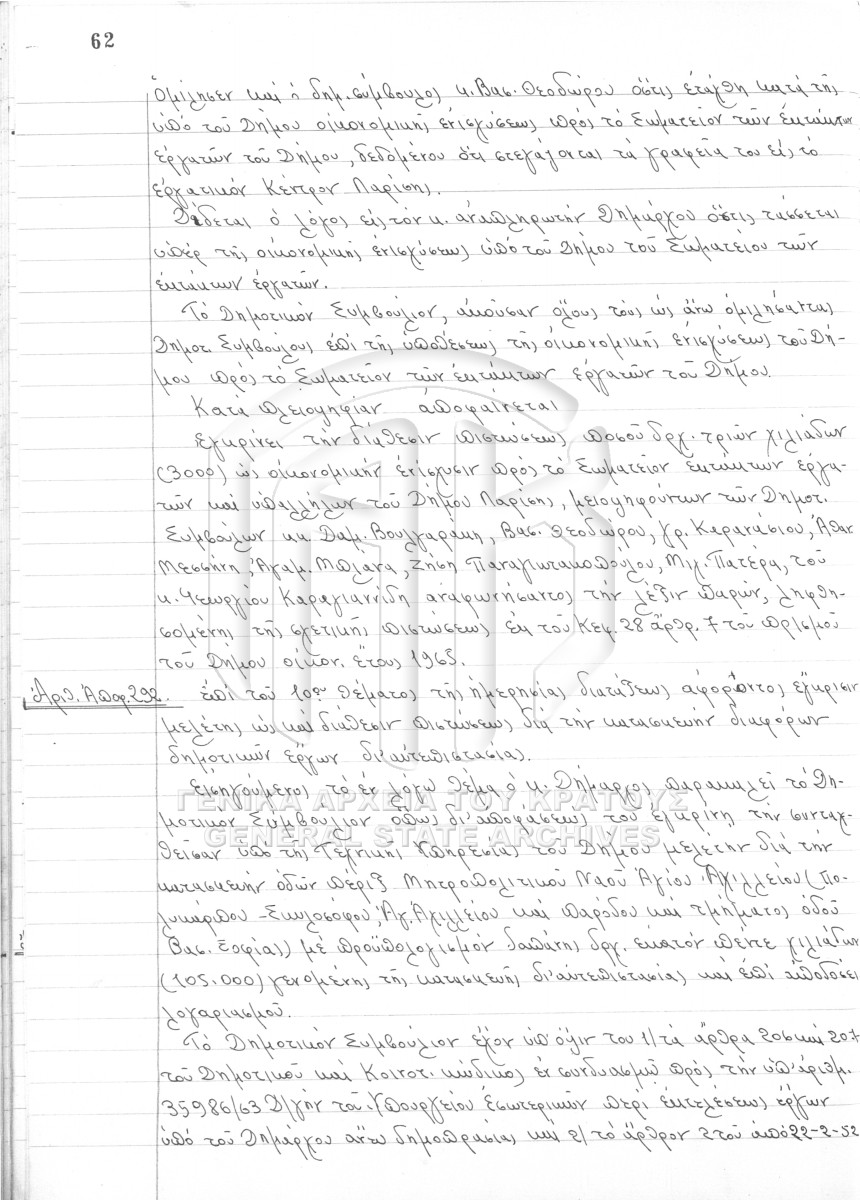 62
Ὁμίλησεν καὶ ὁ δημ. σύμβουλος κ. Βασ. Θεοδώρου ὅστις ἐτάχθη κατὰ τῆς
ὑπὸ τοῦ Δήμου οἰκονομικῆς ἐνισχύσεως πρὸς τὸ Σωματεῖον τῶν ἐκτάκτων
ἐργατῶν τοῦ Δήμου, δεδομένου ὅτι στεγάζονται τὰ γραφεῖα του εἰς τὸ
ἐργατικὸν Κέντρον Λαρίσης.
Δίδεται ὁ λόγος εἰς τὸν κ. ἀναπληρωτὴν Δημάρχου ὅστις τάσσεται
ὑπὲρ τῆς οἰκονομικῆς ἐνισχύσεως ὑπὸ τοῦ Δήμου τοῦ Σωματείου τῶν
ἐκτάκτων ἐργατῶν.
Τὸ Δημοτικὸν Συμβούλιον, ἀκούσαν ὅλους τοὺς ὡς ἄνω ὁμιλήσαντας
Δημοτ. Συμβούλους ἐπὶ τῆς ὑποθέσεως τῆς οἰκονομικῆς ἐνισχύσεως τοῦ Δή-
μου πρὸς τὸ Σωματεῖον τῶν ἐκτάκτων ἐργατῶν τοῦ Δήμου.
Κατὰ πλειοψηφίαν ἀποφαίνεται
Ἐγκρίνει τὴν διάθεσιν πιστώσεως ποσοῦ δρχ. τριῶν χιλιάδων
(3000) ὡς οἰκονομικὴν ἐνίσχυσιν πρὸς τὸ Σωματεῖον ἐκτάκτων ἐργα-
τῶν καὶ ὑπαλλήλων τοῦ Δήμου Λαρίσης, μειοψηφούντων τῶν Δημοτ.
Συμβούλων κκ Δαμ. Βουλγαράκη, Βασ. Θεοδώρου, Γρ. Καρανάσιου, Ἀθαν.
Μεσσήνη, Ἀγαμ. Μπλάνα, Ζήση Παναγιωτακοπούλου, Μιχ. Πατέρα, τοῦ
κ. Γεωργίου Καραγιαννίδη ἀναφωνήσαντος τὴν λέξιν παρών, ληφθη-
σομένης τῆς σχετικῆς πιστώσεως ἐκ τοῦ Κεφ. 28 ἄρθρ. 7 τοῦ πρ/σμοῦ
τοῦ Δήμου οἰκον. ἔτους 1965.
Ἀριθ. Ἀποφ. 292. Ἐπὶ τοῦ 10ου θέματος τῆς ἡμερησίας διατάξεως ἀφορῶντος ἔγκρισιν
μελέτης ὡς καὶ διάθεσιν πιστώσεως διὰ τὴν κατασκευὴν διαφόρων
δημοτικῶν ἔργων δι' αὐτεπιστασίας.
Εἰσηγούμενος τὸ ἐν λόγῳ θέμα ὁ κ. Δήμαρχος παρακαλεῖ τὸ Δη-
μοτικὸν Συμβούλιον ὅπως δι' ἀποφάσεώς του ἐγκρίνῃ τὴν συνταχ-
θεῖσαν ὑπὸ τῆς Τεχνικῆς Ὑπηρεσίας τοῦ Δήμου μελέτην διὰ τὴν
κατασκευὴν ὁδῶν πέριξ Μητροπολιτικοῦ Ναοῦ Ἁγίου Ἀχιλλείου (Πο-
λυκάρπου - Σκυλοσόφου, Ἁγ. Ἀχιλλείου καὶ παρόδου καὶ τμήματος ὁδοῦ
Βασ. Σοφίας) μὲ προϋπολογισμὸν δαπάνης δρχ. ἑκατὸν πέντε χιλιάδων
(105.000) γενομένης τῆς κατασκευῆς δι' αὐτεπιστασίας καὶ ἐπὶ ἀποδόσει
λογαριασμοῦ.
Τὸ Δημοτικὸν Συμβούλιον ἔχον ὑπ' ὄψιν του 1/ τὰ ἄρθρα 205 καὶ 207
τοῦ Δημοτικοῦ καὶ Κοινοτ. κώδικος ἐν συνδυασμῷ πρὸς τὴν ὑπ' ἀριθμ.
35986/63 Δ/γὴν τοῦ Ὑπουργείου Ἐσωτερικῶν περὶ ἐκτελέσεως ἔργων
ὑπὸ τοῦ Δημάρχου ἄνευ δημοπρασίας καὶ 2/ τὸ ἄρθρον 2 τοῦ ἀπὸ 22-2-52
ΓΕΝΙΚΑ ΑΡΧΕΙΑ ΤΟΥ ΚΡΑΤΟΥΣ
GENERAL STATE ARCHIVES